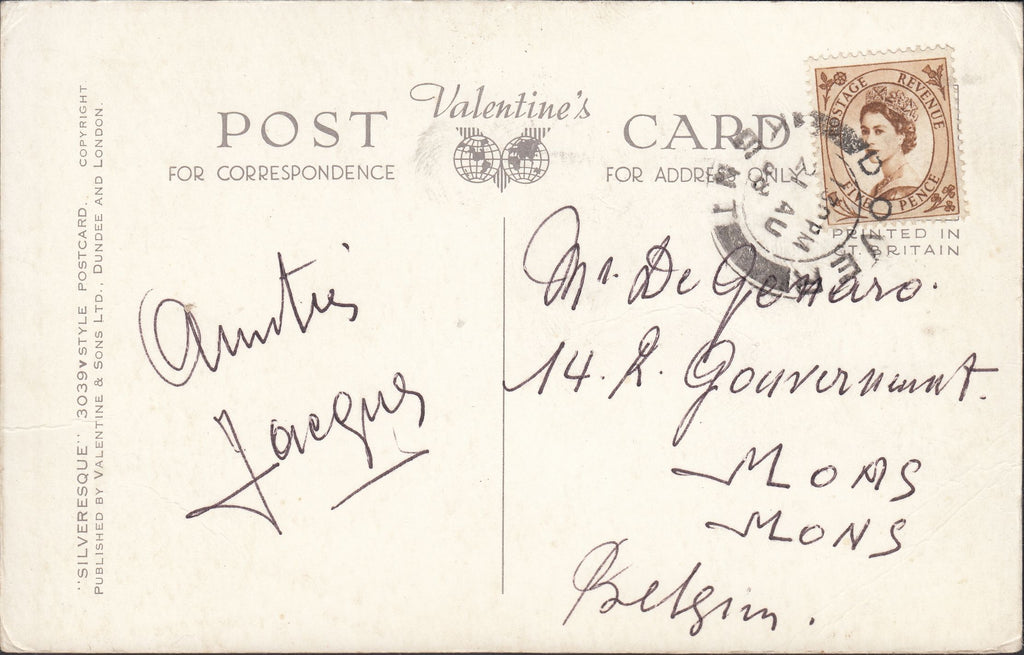 "SILVERESQUE" 3039V STYLE POSTCARD. COPYRIGHT
PUBLISHED BY VALENTINE & SONS LTD., DUNDEE AND LONDON.
POST
FOR CORRESPONDENCE
Valentine's
CARD
FOR ADDRESS ONLY
POSTAGE REVENUE
FIVE PENCE
PRINTED IN
GT. BRITAIN
DOVER
KENT
PM
AU
Amitiés
Jacques
Mr. De Gennaro.
14. R. Gouvernement.
MONS
MONS
Belgium.